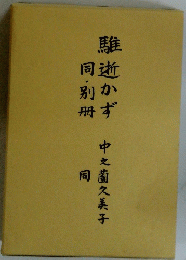 騅逝かず
同・別冊
中之薗久美子
同